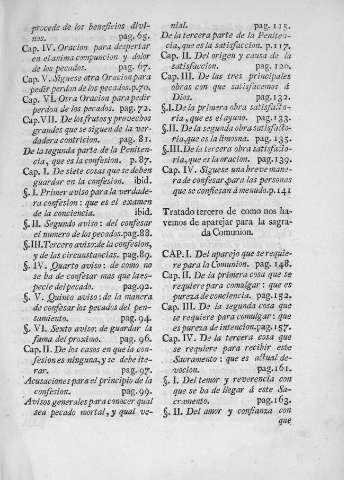 procede de los beneficios divi-
nos. pag. 65.
Cap. IV. Oracion para despertar
en el anima compuncion y dolor
de los pecados. pag. 67.
Cap. V. Siguese otra Oracion para
pedir perdon de los pecados. p.70.
Cap. VI. Otra Oracion para pedir
perdon de los pecados. pag. 72.
Cap. VII. De los frutos y provechos
grandes que se siguen de la ver-
dadera contricion. pag. 81.
De la segunda parte de la Peniten-
cia, que es la confesion. p. 87.
Cap. I. De siete cosas que se deben
guardar en la confesion. ibid.
§. I. Primer aviso para la verdade-
ra confesion: que es el examen
de la conciencia. ibid.
§. II. Segundo aviso: del confesar
el numero de los pecados. pag.88.
§.III. Tercero aviso: de la confesion,
y de las circunstancias. pag.89.
§. IV. Quarto aviso: de como no
se ba de confesar mas que la es-
pecie del pecado. pag.92.
§. V. Quinto aviso: de la manera
de confesar los pecados del pen-
samiento. pag. 94.
§. VI. Sexto aviso: de guardar la
fama del proximo. pag. 96.
Cap. II. De los casos en que la con-
fesion es ninguna, y se debe ite-
rar. pag. 97.
Acusaciones para el principio de la
confesion. pag. 99.
Avisos generales para conocer qual
sea pecado mortal, y qual ve-
nial. pag. 115.
De la tercera parte de la Peniten-
cia, que es la satisfaccion. p.117.
Cap. II. Del origen y causa de la
satisfaccion. pag. 120.
Cap. III. De las tres principales
obras con que satisfacemos á
Dios. pag. 132.
§. I. De la primera obra satisfacto-
ria, que es el ayuno. pag. 133.
§.II. De la segunda obra satisfacto-
ria, que es la limosna. pag. 135.
§.III. De la tercera obra satisfacto-
ria, que es la oracion. pag. 139.
Cap. IV. Siguese una breve mane-
ra de confesar, para las personas
que se confiesan á menudo. p.141
Tratado tercero de como nos ha-
vemos de aparejar para la sagra-
da Comunion.
CAP. I. Del aparejo que se requie-
re para la Comunion. pag. 148.
Cap. II. De la primera cosa que se
requiere para comulgar: que es
pureza de conciencia. pag. 152.
Cap. III. De la segunda cosa que
se requiere para comulgar: que
es pureza de intencion. pag.157.
Cap. IV. De la tercera cosa que
se requiere para recibir este
Sacramento: que es actual de-
vocion. pag.161.
§. I. Del temor y reverencia con
que se ba de llegar á este Sa-
cramento. pag.163.
§. II. Del amor y confianza con
que